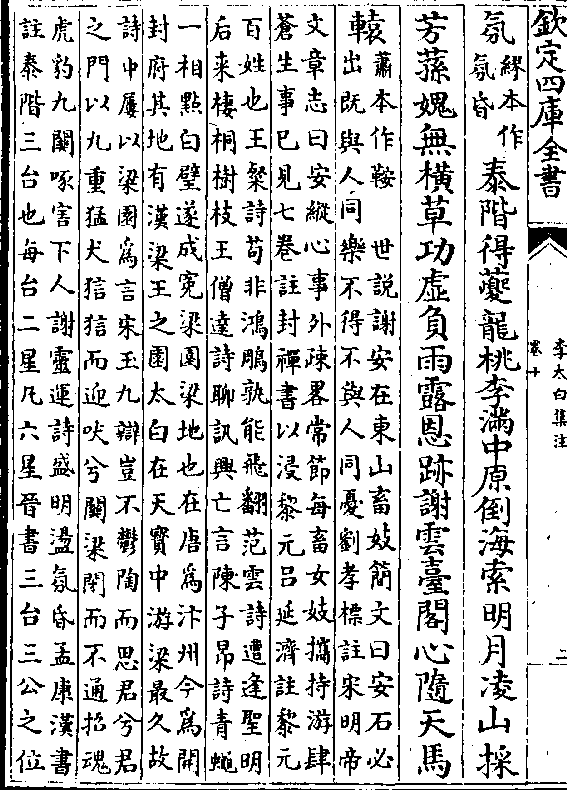 欽定四庫全書
李太白集注
卷十
二
氛
繆本作
氛昏
泰階得夔龍桃李滿中原倒海索明月凌山採
芳蓀媿無横草功虚負雨露恩跡謝雲臺閣心隨天馬
轅
蕭本作鞍　世説謝安在東山畜妓簡文曰安石必
出既與人同樂不得不與人同憂劉孝標註宋明帝
文章志曰安縱心事外疎畧常節每畜女妓攜持游肆
蒼生事已見七卷註封禪書以浸黎元吕延濟註黎元
百姓也王粲詩苟非鴻鵰孰能飛翻范雲詩遭逢聖明
后来棲桐樹枝王僧達詩聊訊興亡言陳子昂詩青蠅
一相點白璧遂成寃梁園梁地也在唐爲汴州今爲開
封府其地有漢梁王之園太白在天寳中游梁最久故
詩中屢以梁園爲言宋玉九辯豈不鬱陶而思君兮君
之門以九重猛犬狺狺而迎吠兮關梁閉而不通招魂
虎豹九關啄害下人謝靈運詩盛明盪氛昏孟康漢書
註泰階三台也每台二星凡六星晉書三台三公之位